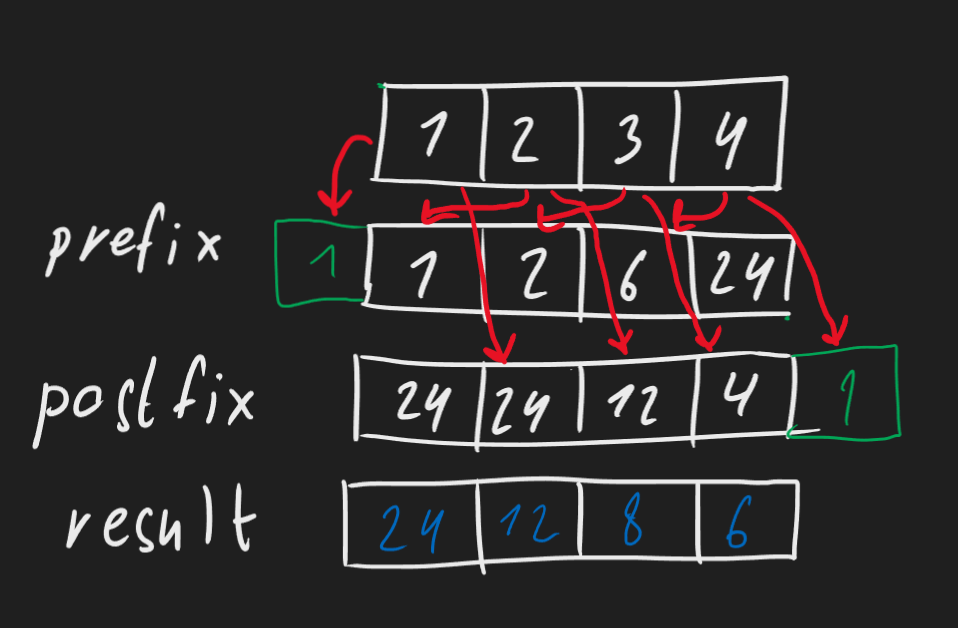 1 2 3 4
prefix 1 1 2 6 24
postfix 24 24 12 4 1
result 24 12 8 6